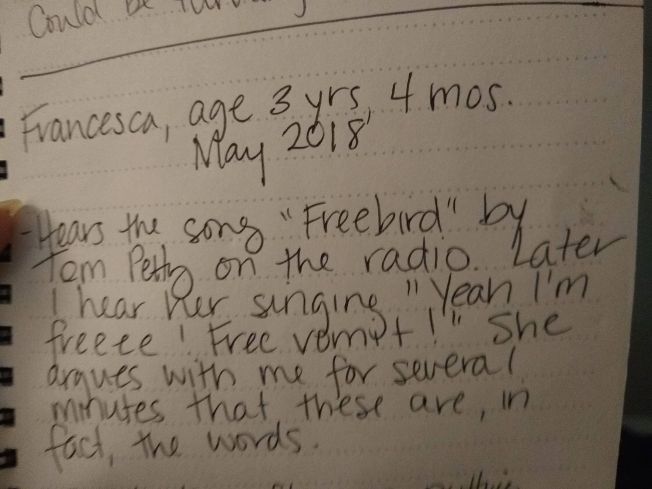 Could be
Francesca, age 3 yrs, 4 mos.
May 2018
- Hears the song "Freebird" by
Tom Petty on the radio. Later
I hear her singing "Yeah I'm
freeee! Free vomit!" She
argues with me for several
minutes that these are, in
fact, the words.